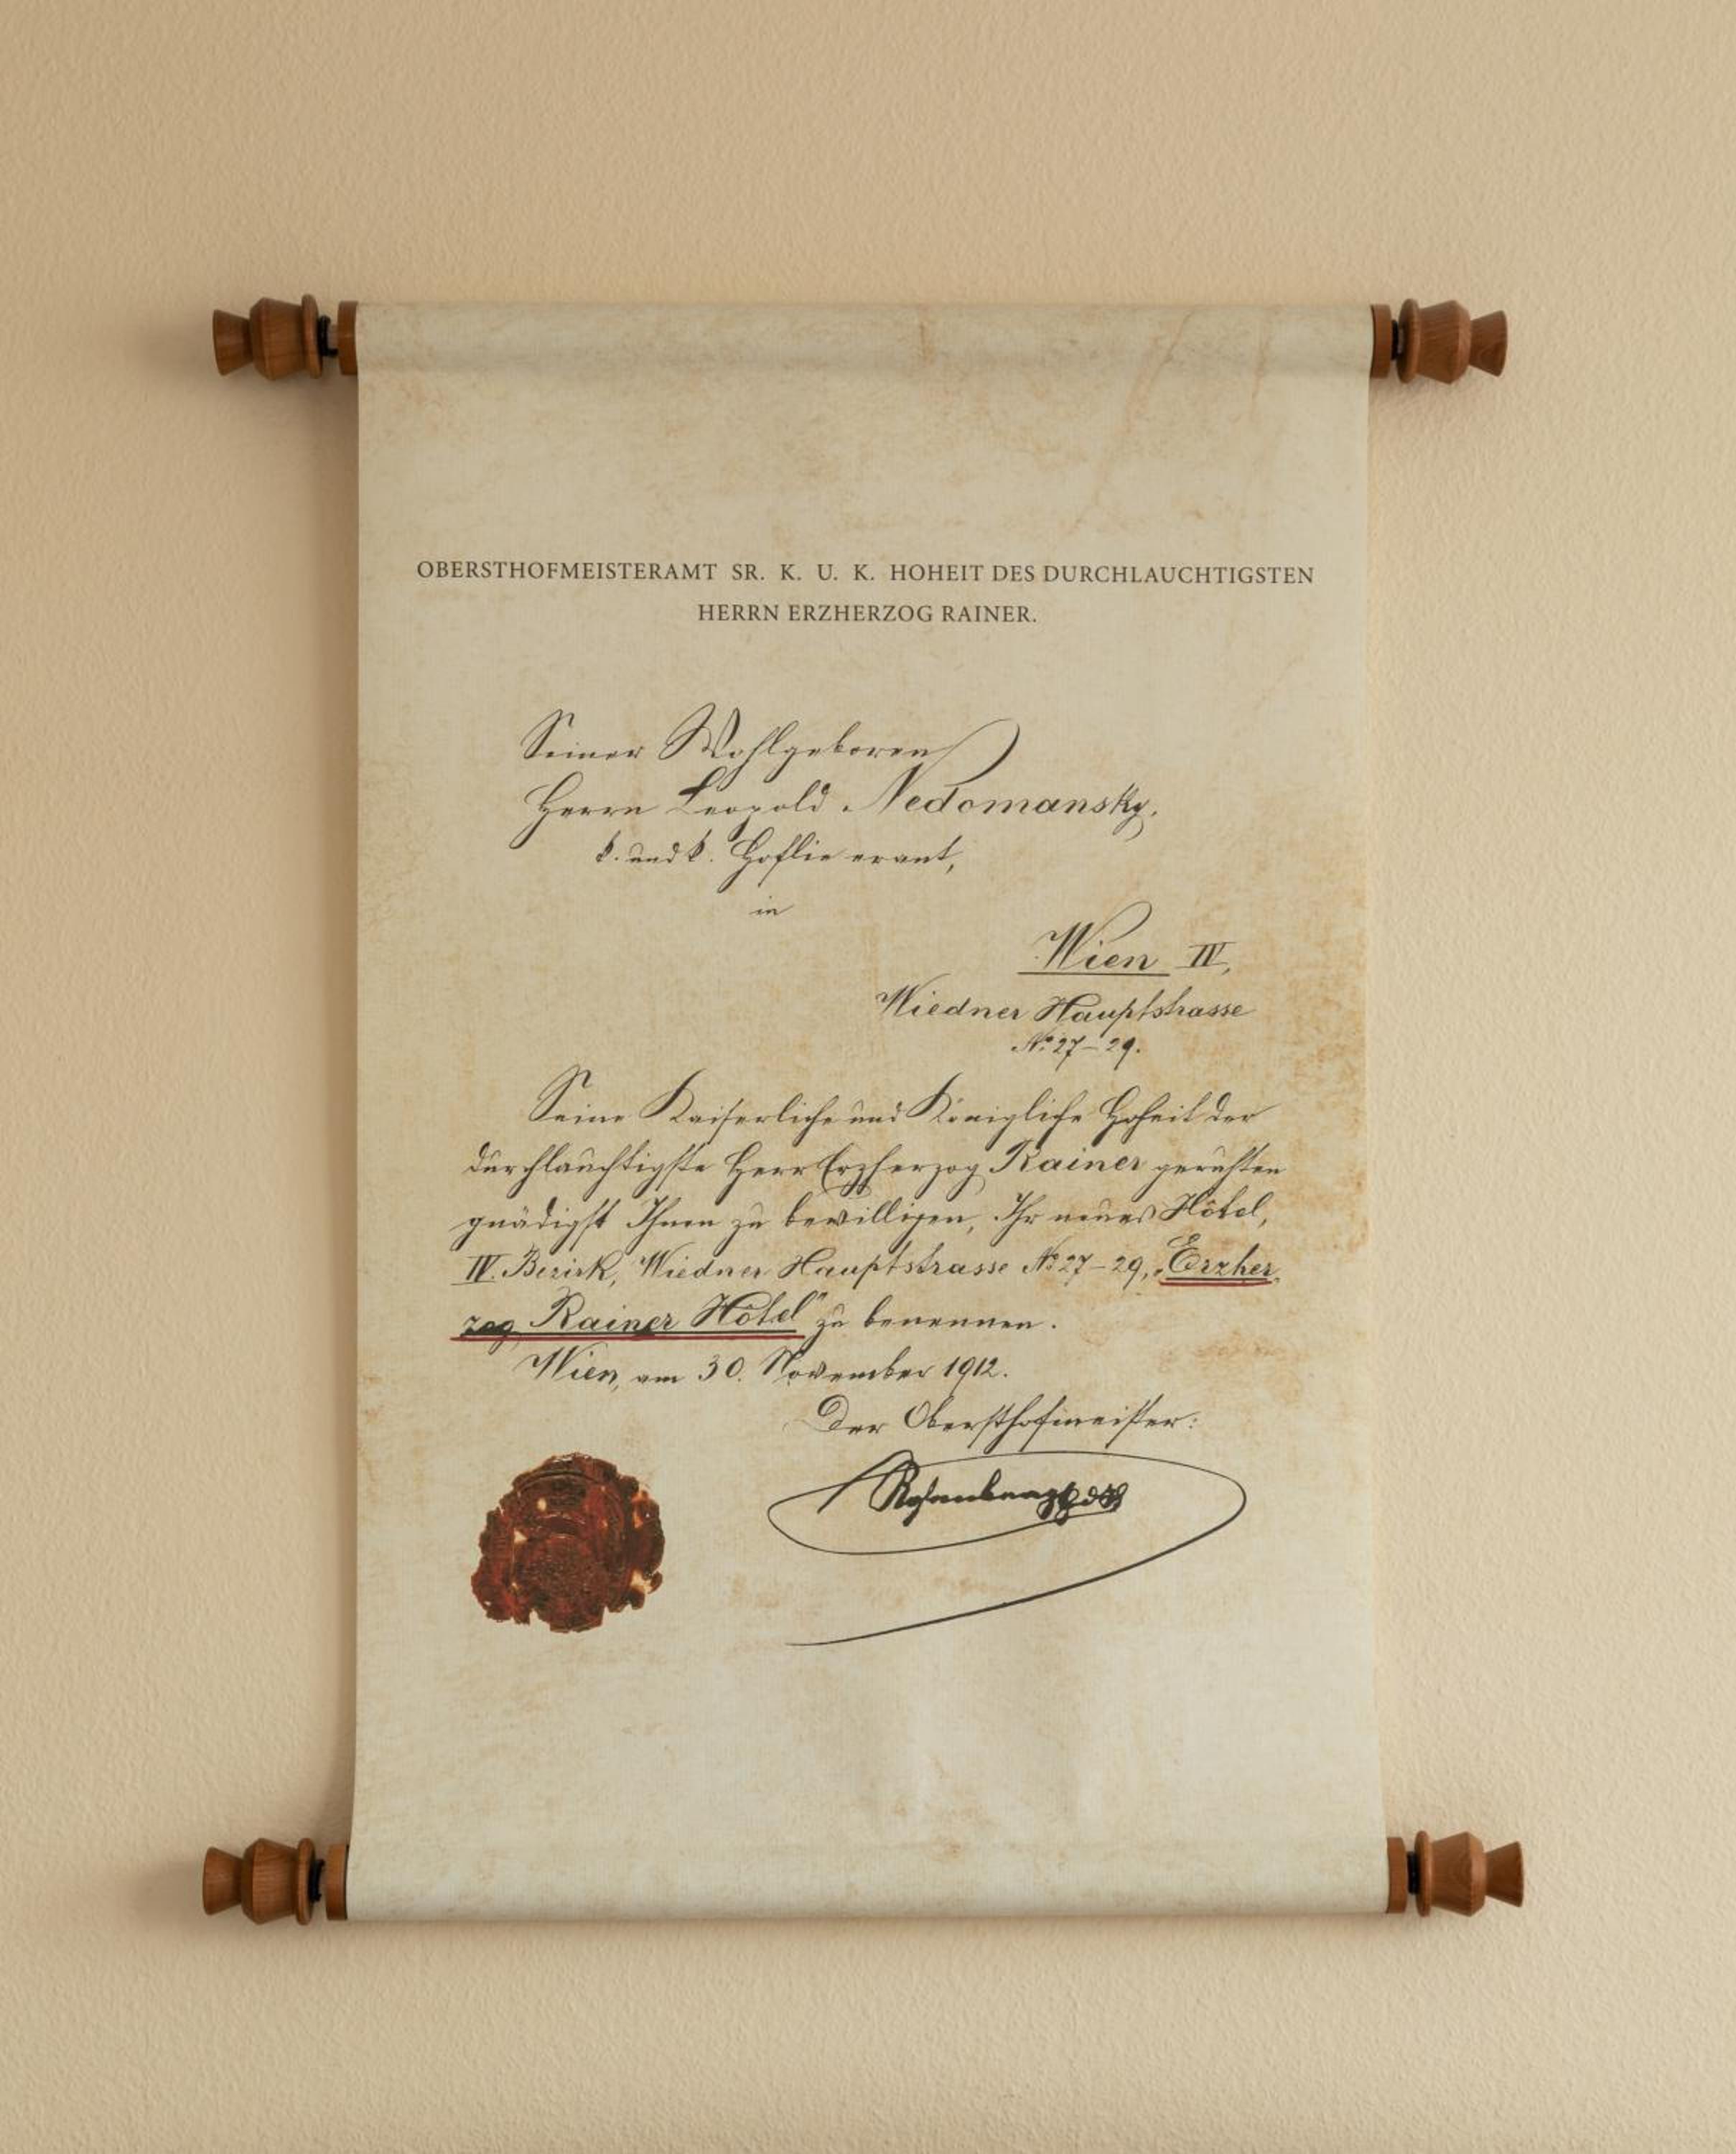 OBERSTHOFMEISTERAMT SR. K. U. K. HOHEIT DES DURCHLAUCHTIGSTEN
HERRN ERZHERZOG RAINER.
Seiner Wohlgeboren
Herrn Leopold Nedomansky,
k. und k. Hoflieferant,
in
Wien IV,
Wiedner Hauptstrasse
No 27–29.
Seine Kaiserliche und Königliche Hoheit der
durchlauchtigste Herr Erzherzog Rainer geruhten
gnädigst Ihnen zu bewilligen, Ihr neues Hôtel,
IV. Bezirk, Wiedner Hauptstrasse No 27–29, „Erzher
zog Rainer Hôtel" zu benennen.
Wien, am 30. November 1912.
Der Obersthofmeister: